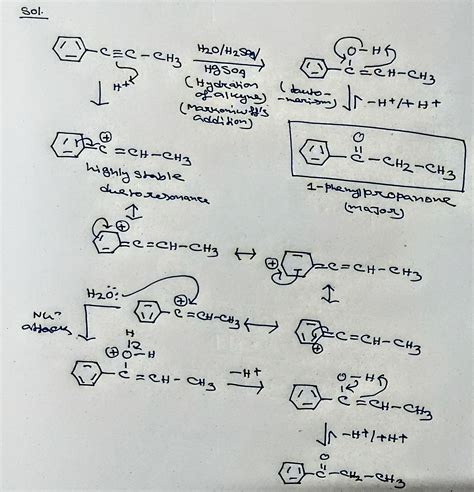 Sol.
C≡C-CH3
H2O/H2SO4/
HgSO4
(Hydration
of alkyne)
(Markonikoff's
addition)
O-H
C=CH-CH3
(tauto-
merism)
-H+/+H+
H+
⊕
C=CH-CH3
highly stable
due to resonance
O
C-CH2-CH3
1-phenylpropanone
(major)
⊕
=C=CH-CH3 ↔ ⊕ =C=CH-CH3
H2O:
Nu-
attacks
⊕
C=CH-CH3 ↔ =C=CH-CH3
⊕
H
⊕ O-H
C=CH-CH3
-H+
O-H
C=CH-CH3
-H+/+H+
O
C-CH2-CH3